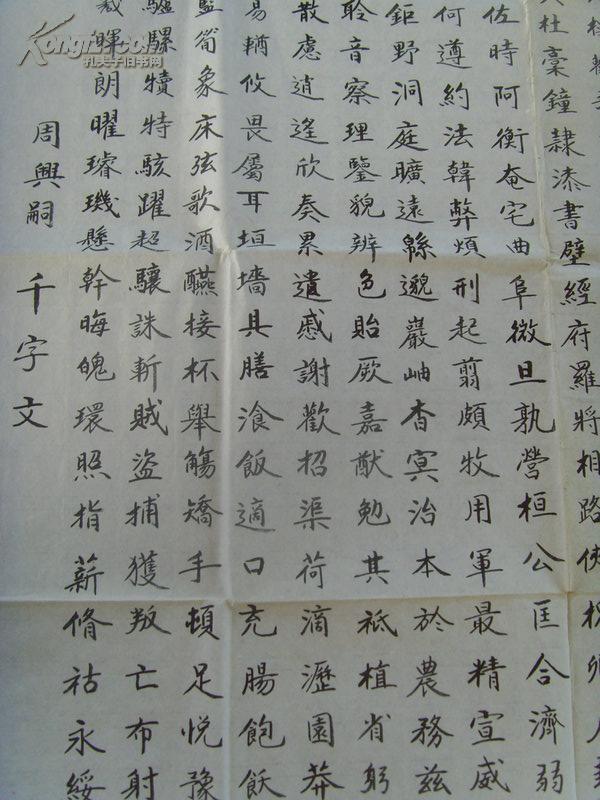 杜稾鐘隸漆書壁經府羅將相路俠槐卿
佐時阿衡奄宅曲阜微旦孰營桓公匡合濟弱
何遵約法韓弊煩刑起翦頗牧用軍最精宣威
鉅野洞庭曠遠緜邈巖岫杳冥治本於農務茲
聆音察理鑒貌辨色貽厥嘉猷勉其祗植省躬
散慮逍遙欣奏累遣慼謝歡招渠荷滴瀝園莽
易輶攸畏屬耳垣墻具膳飡飯適口充腸飽飫
藍筍象床弦歌酒醼接杯舉觴矯手頓足悅豫
驢騾犢特駭躍超驤誅斬賊盜捕獲叛亡布射
裁暉朗曜璿璣懸幹晦魄環照指薪脩祜永綏
周興嗣 千字文
孔夫子旧书网